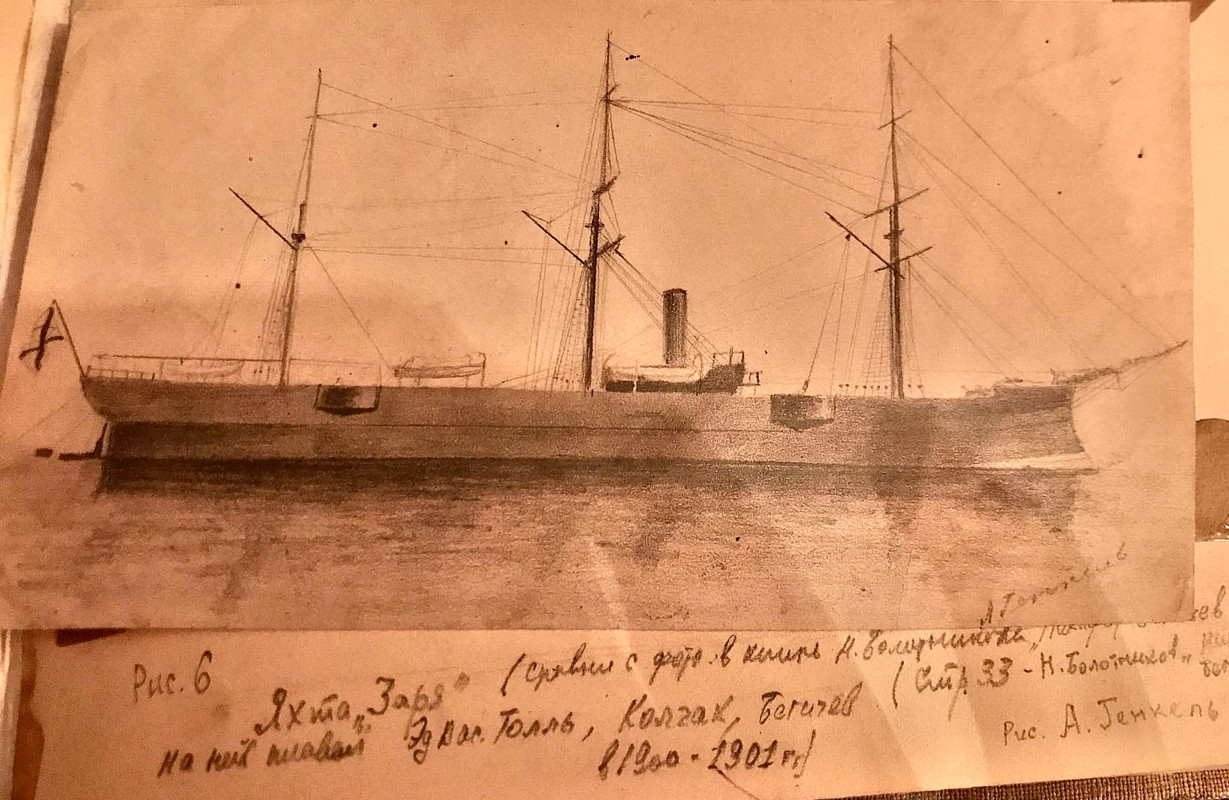 А Генкель
Рис. 6 (сравни с фото в книге Н. Болотникова „Никифор
Яхта „Заря" (Стр. 33 - Н. Болотников „
на ней плавал Эд Вас. Толль, Колчак, Бегичев
в 1900 - 1901 гг)
Рис. А. Генкель